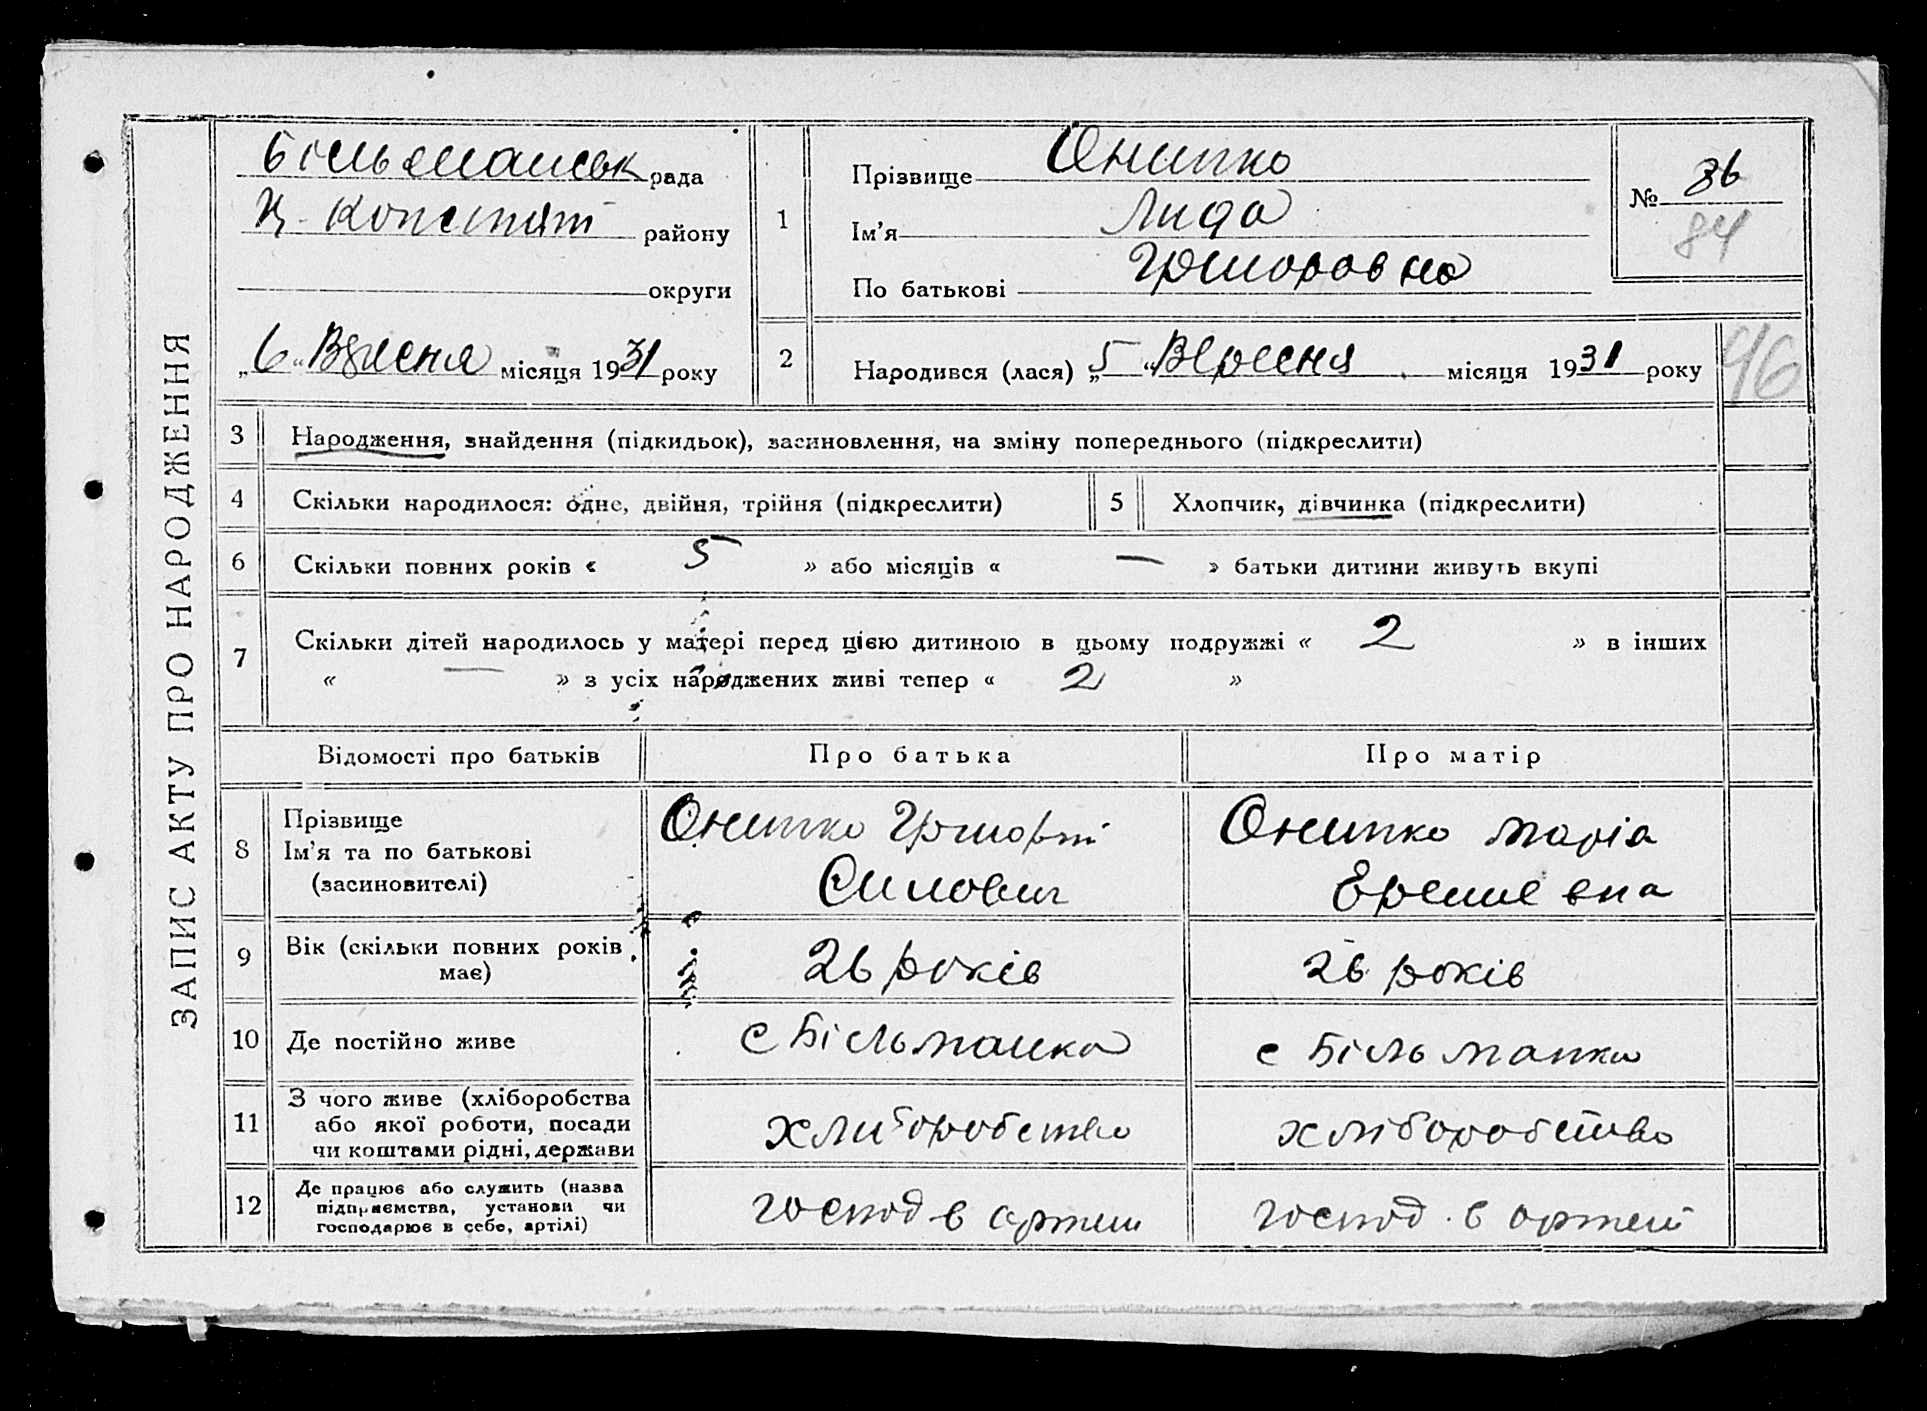 ЗАПИС АКТУ ПРО НАРОДЖЕННЯ
Більманськ рада
Ц-Констят району
округи
„6“ Вресня місяця 1931 року
1
Прізвище Онипко
Ім'я Лида
По батькові Григоровна
№ 86
84
2
Народився (лася) „5“ Вересня місяця 1931 року
96
3 Народження, знайдення (підкидьок), засиновлення, на зміну попереднього (підкреслити)
4 Скільки народилося: одне, двійня, трійня (підкреслити)
5 Хлопчик, дівчинка (підкреслити)
6 Скільки повних років « 5 » або місяців « — » батьки дитини живуть вкупі
7 Скільки дітей народилось у матері перед цією дитиною в цьому подружжі « 2 » в інших
« — » з усіх народжених живі тепер « 2 »
Відомості про батьків Про батька Про матір
8
Прізвище
Ім'я та по батькові
(засиновителі)
Онипко Григорій
Силович
Онипко Марія
Еремиевна
9
Вік (скільки повних років
має)
26 років
26 років
10 Де постійно живе
с Більманка
с Більманка
11
З чого живе (хліборобства
або якої роботи, посади
чи коштами рідні, держави
хлиборобство
хліборобство
12
Де працює або служить (назва
підприємства, установи чи
господарює в себе, артілі)
господ в артели
господ. в артелі